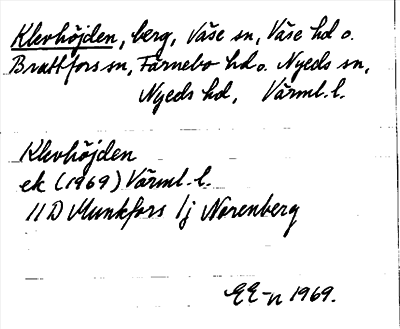 Klevhöjden, berg, Väse sn, Väse hd o.
Brattfors sn, Färnebo hd o. Nyeds sn,
Nyeds hd, Värml. l.
Klevhöjden
ek (1969) Värml. l.
11D Munkfors 1j Norenberg
EE-n 1969.